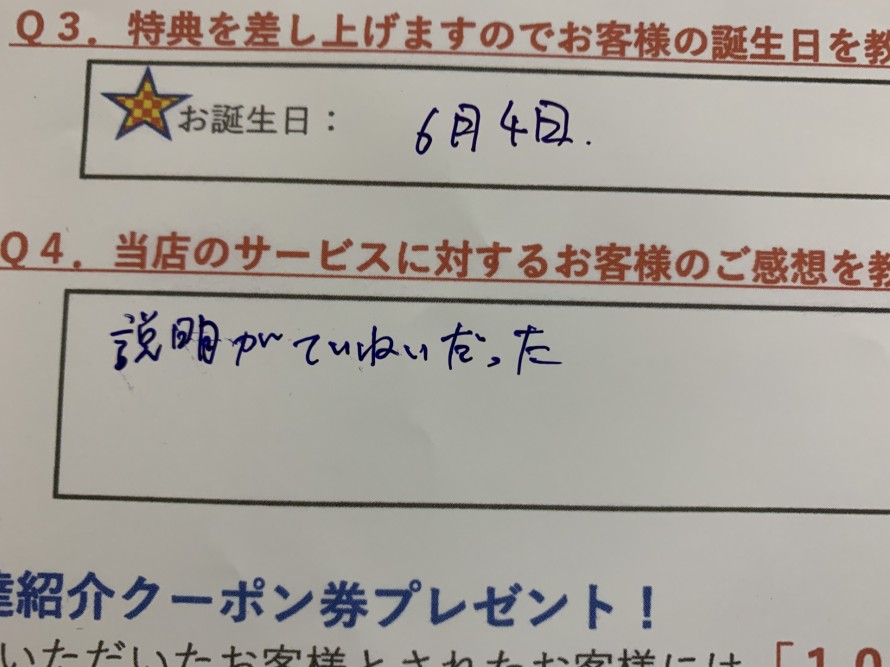 Q3．特典を差し上げますのでお客様の誕生日を教
お誕生日： 6月4日.
Q4．当店のサービスに対するお客様のご感想を教
説明がていねいだった
達紹介クーポン券プレゼント！
いただいたお客様とされたお客様には「10